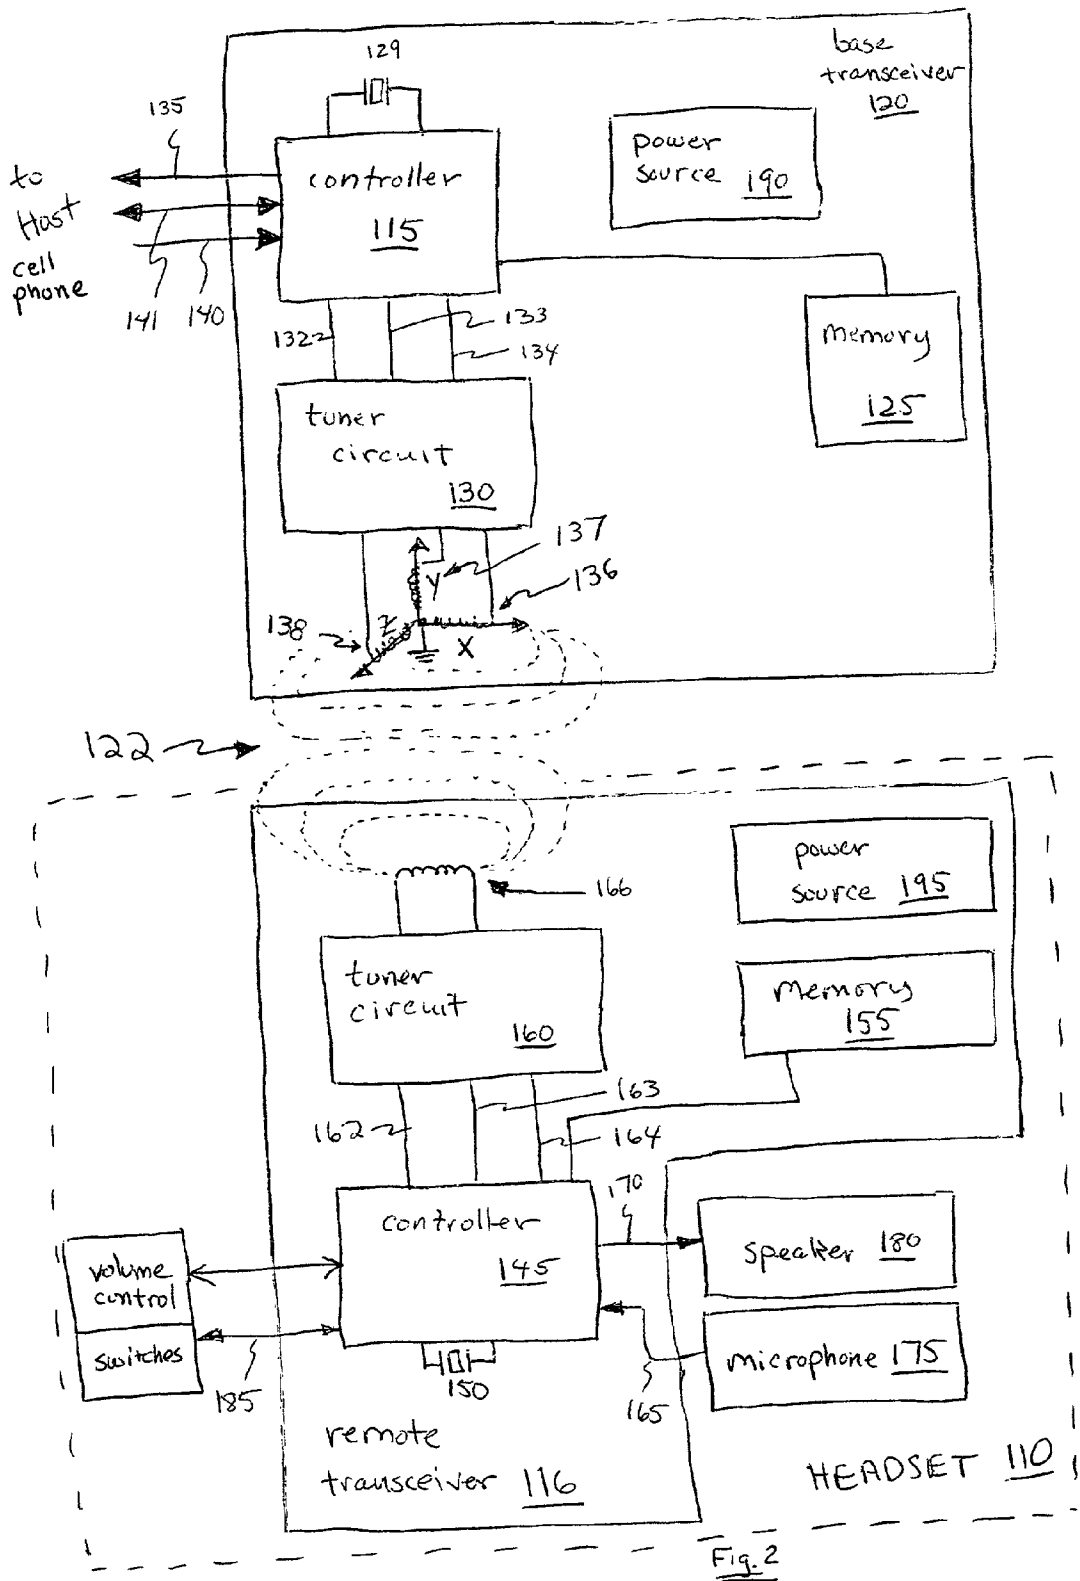 129
base
transceiver
120
135
to
Host
cell
phone
141
140
controller
115
power
source 190
memory
125
132
133
134
tuner
circuit
130
137
136
138
Z
Y
X
122
166
power
source 195
tuner
circuit
160
memory
155
162
163
164
170
controller
145
speaker 180
volume
control
switches
185
150
165
microphone 175
remote
transceiver 116
HEADSET 110
Fig. 2